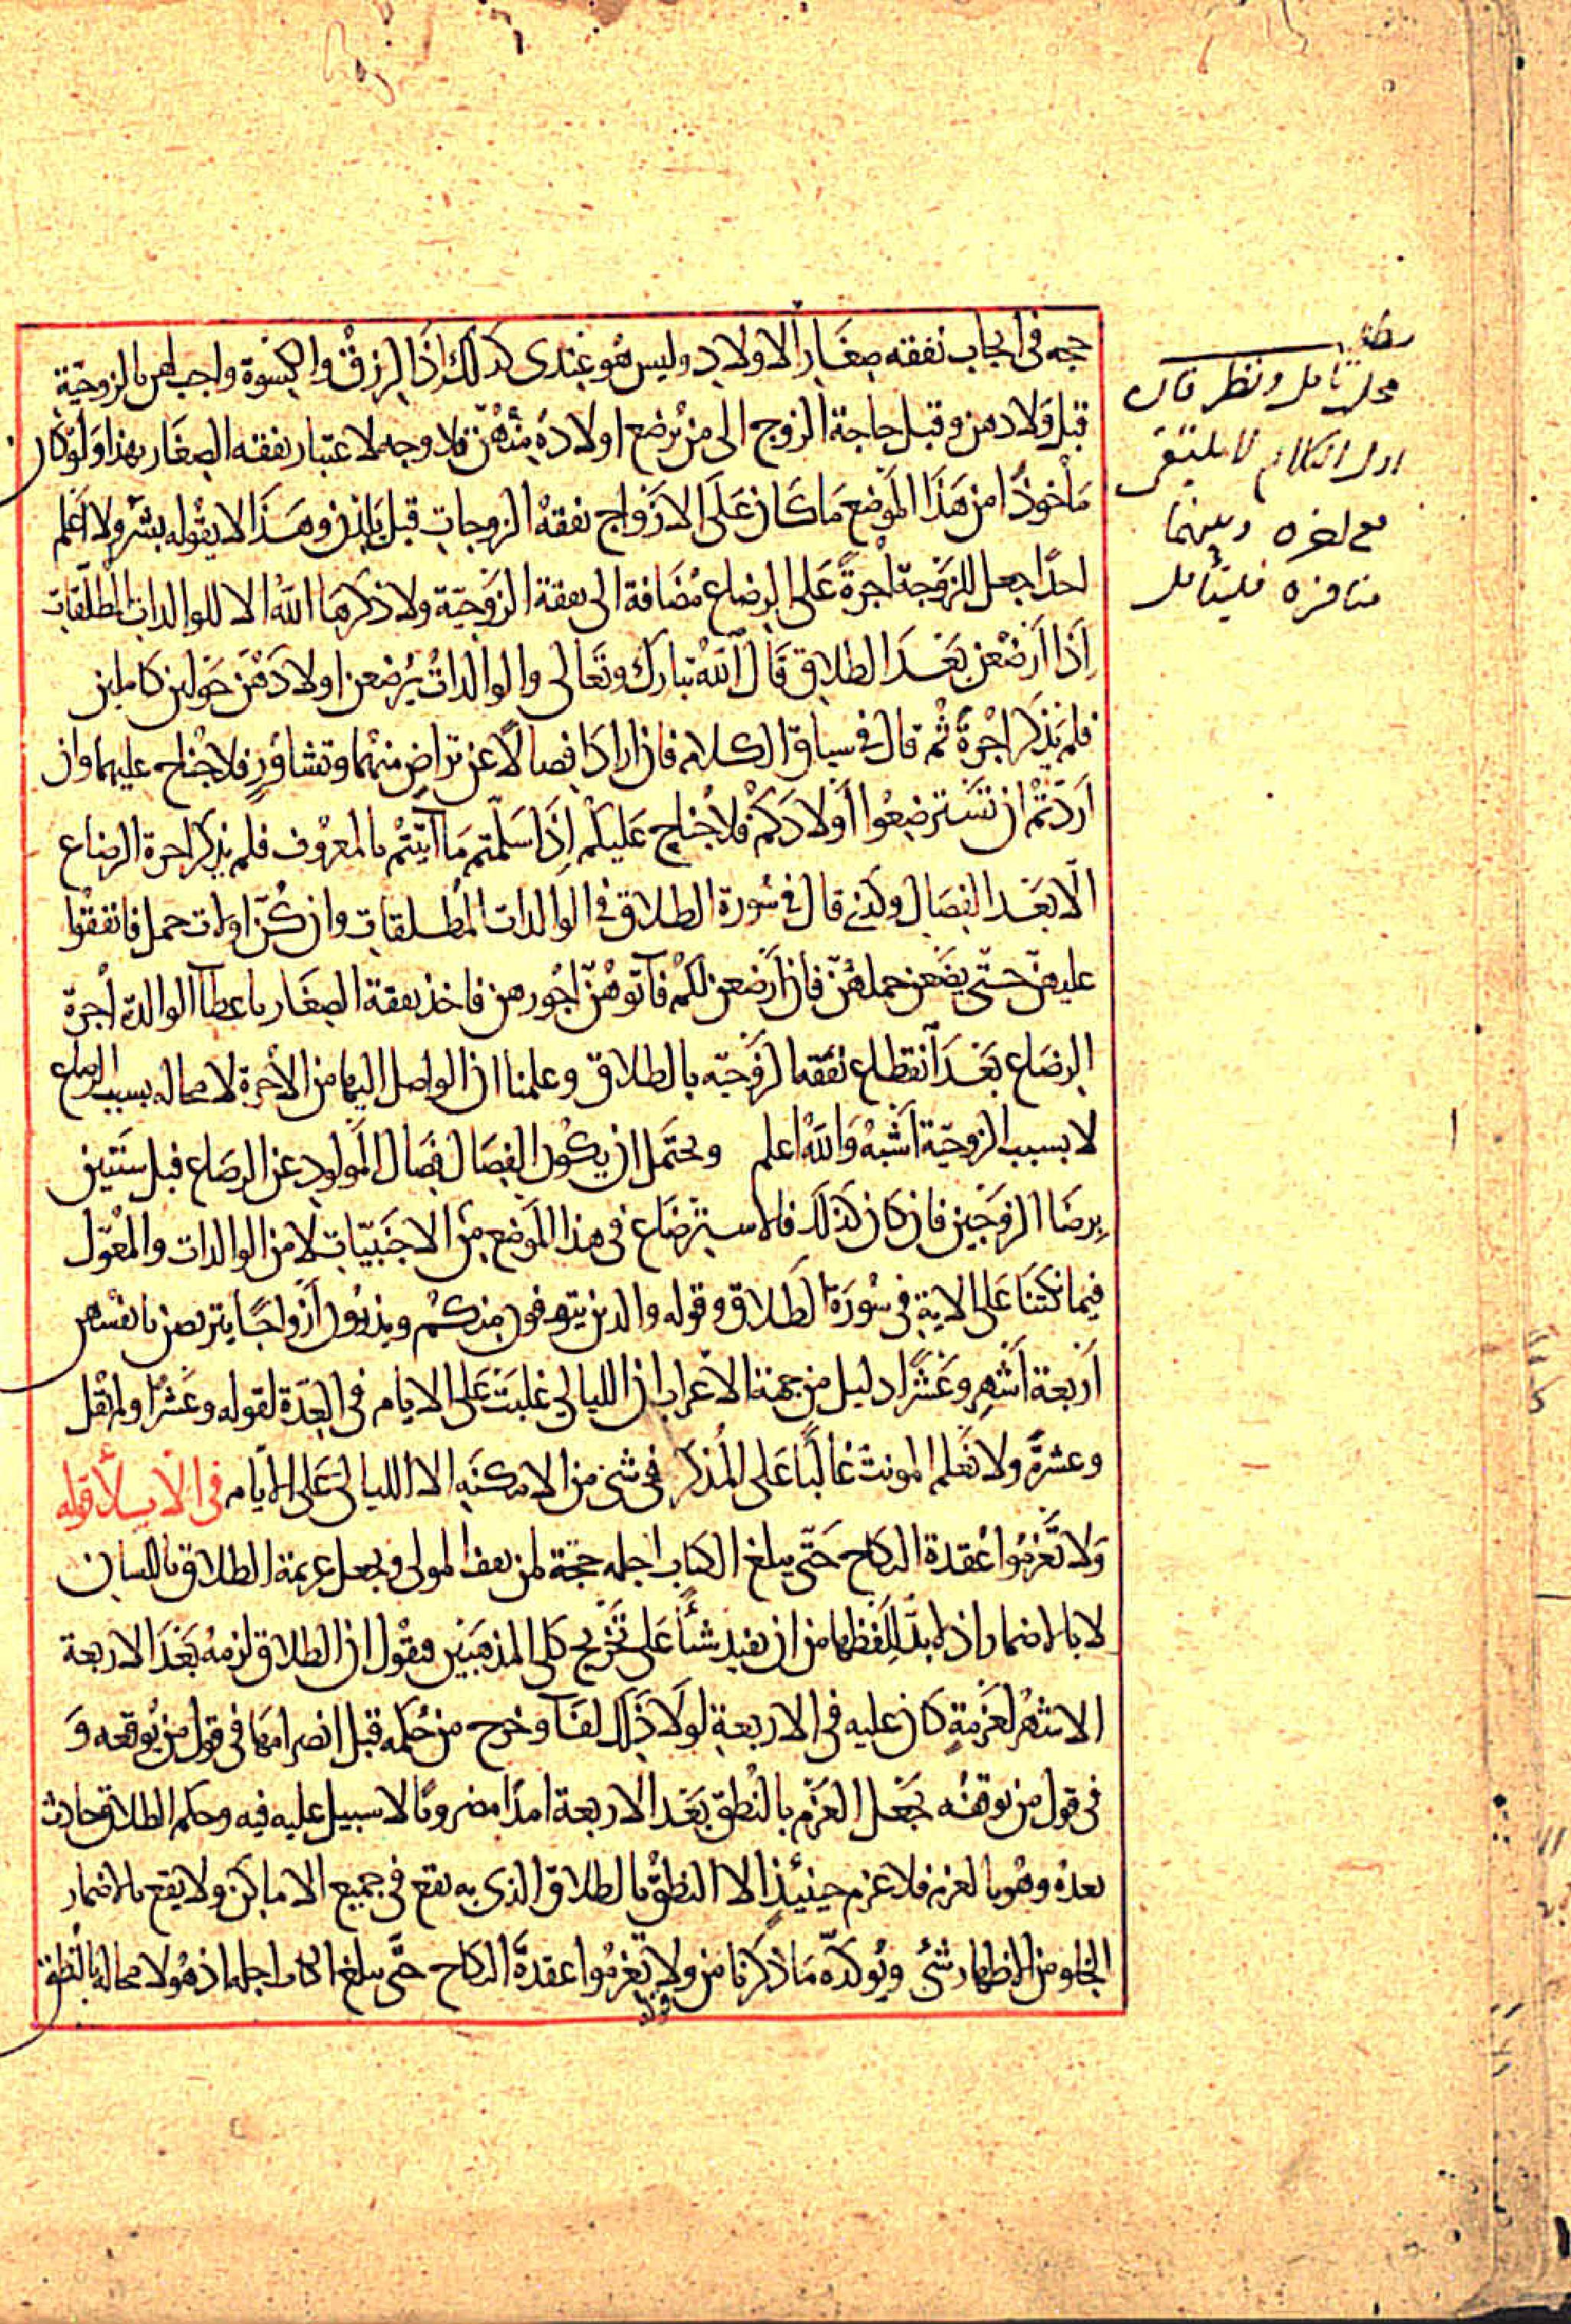 حجه في ايجاب نفقه صغار الاولاد وليس هو عندي كذلك اذ الرزق والكسوة واجب لهن بالزوجية
قبل ولادهن وقبل حاجة الزوج الى من يرضع اولاده منهن فلا وجه لاعتبار نفقه الصغار بهذا ولو كان
مأخوذا من هذا الموضع ما كان على الازواج نفقة الزوجات قبل بأنذن وهذا لا يقوله بشر ولا اعلم
احدا جعل للزوجة اجرة على الرضاع مضافة الى نفقة الزوجية ولا ذكرها الله الا للوالدات المطلقات
إذا أرضعن بعد الطلاق قال الله تبارك وتعالى والوالدات يرضعن اولادهن حولين كاملين
فلم يذكر اجرة ثم قال في سياق الكلام فان ارادا فصالا عن تراض منهما وتشاور فلا جناح عليهما وان
اردتم ان تسترضعوا أولادكم فلا جناح عليكم إذا سلمتم ما آتيتم بالمعروف فلم يذكر اجرة الرضاع
الا بعد الفصال ولكنه قال في سورة الطلاق في الوالدات المطلقات وان كن اولات حمل فانفقوا
عليهن حتى يضعن حملهن فان أرضعن لكم فآتوهن اجورهن فاخذ نفقة الصغار باعطآ الوالدة أجرة
الرضاع بعد آنقطاع نفقه الزوجيه بالطلاق وعلمنا ان الواصل اليها من الأجرة لا محاله بسبب الرضاع
لا بسبب الزوجية أشبه والله اعلم ويحتمل ان يكون الفصال فصال المولود عن الرضاع قبل سنتين
برضا الزوجين فان كان كذلك فالاسترضاع في هذا الموضع من الاجنبيات لا من الوالدات والمعول
فيها نكتنا على الاية في سورة الطلاق وقوله والذين يتوفون منكم ويذرون أزواجا يتربصن بانفسهن
أربعة أشهر وعشرا دليل من جهة الاعراب ان الليالي غلبت على الايام في العدة لقوله وعشرا ولم يقل
وعشرة ولا نعلم المونث غالبا على المذكر في شئ من الامكنه الا الليالي على الايام في الايلاء قوله
ولا تعزموا عقدة النكاح حتى يبلغ الكتاب اجله حجة لمن يقف المولى ويجعل عزيمة الطلاق باللسان
لا بالاضمار اذ لا بد للفظها من ان يفيد شئا على تخريج كلى المذهبين فيقول ان الطلاق لزمه بعد الاربعة
الاشهر لعزمة كان عليه في الاربعة لولا ذلك لفآ وخرج من حكمه قبل انصرامها في قول من يوقعه و
في قول من يوقفه يجعل العزم بالنطق بعد الاربعة امدا مضروبا لا سبيل عليه فيه وحكم الطلاق حادث
بعده وهو بالعزم فلا عزم حينئذ الا النطق بالطلاق الذي به يقع في جميع الاماكن ولا يقع بالاضمار
الخلو من الاظهار شئ ويؤكده ما ذكرنا من ولا تعزموا عقدة النكاح حتى يبلغ الكتاب اجله اذ هو لا محالة بالنطق
محل تامل ونظر فان
اول الكلام لا يلتئم
مع اخره وبينهما
منافرة فليتأمل